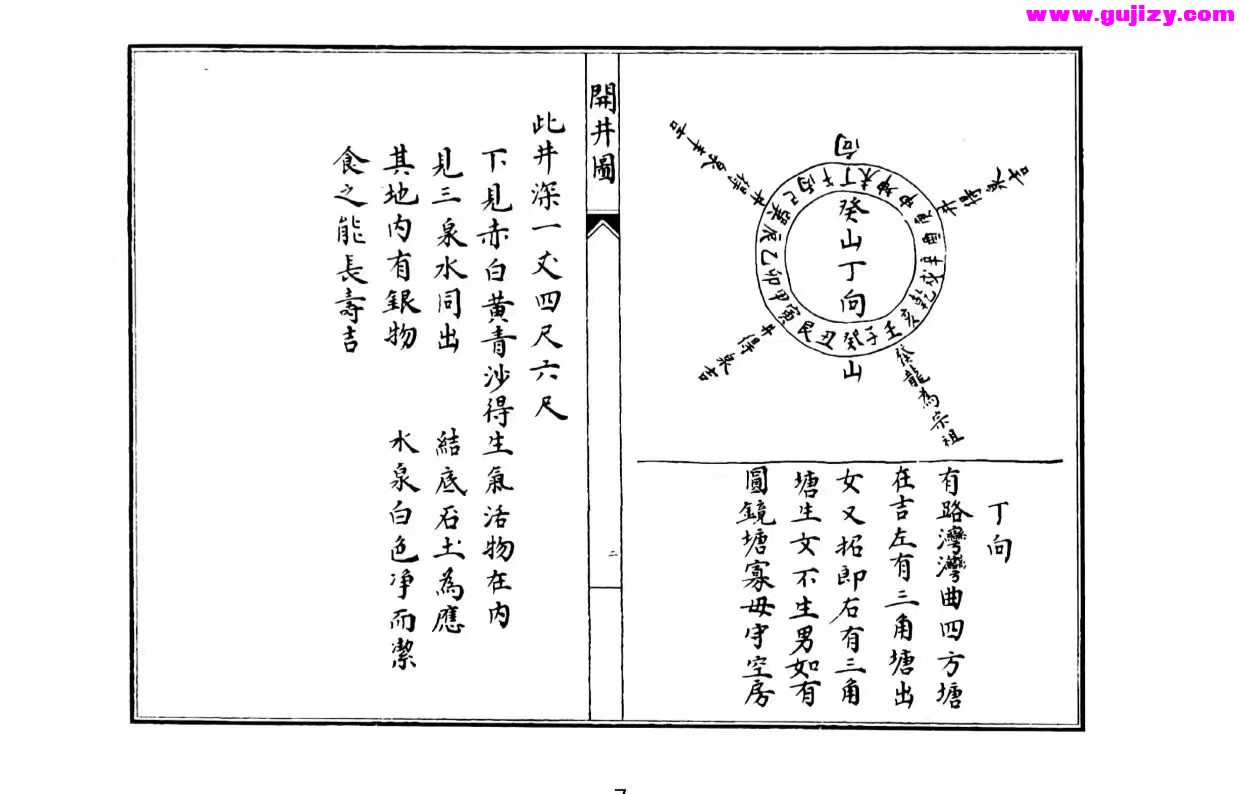 www.gujizy.com
向
丙午丁未坤申庚酉辛戌乾亥壬子癸丑艮寅甲卯乙辰巽巳
癸山丁向
山
井得泉吉
癸龍為宗祖
井得泉吉
丁向
有路灣灣曲四方塘
在吉左有三角塘出
女又招郎右有三角
塘生女不生男如有
圓鏡塘寡母守空房
開井圖
二
此井深一丈四尺六尺
下見赤白黄青沙得生氣活物在内
見三泉水同出 結底石土為應
其地内有銀物 水泉白色净而潔
食之能長壽吉
7